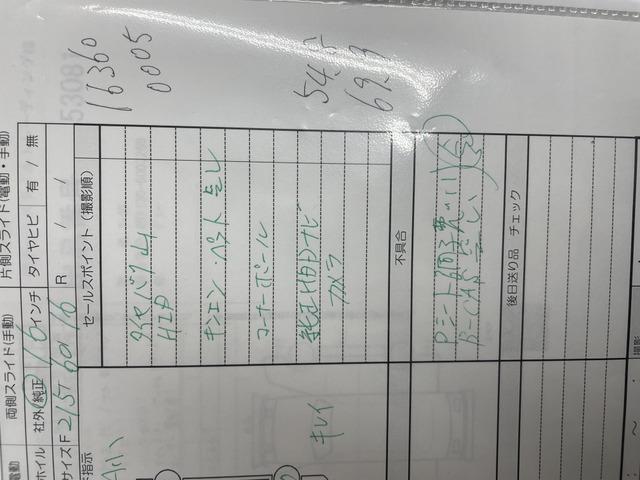 16360
0005
54.5
69.9
片側スライド(電動・手動)
両側スライド(手動)
電動
タイヤヒビ 有 / 無
ホイル 社外 純正 16インチ
サイズF 215 / 60 / 16 R / /
セールスポイント (撮影順)
タイヤバリ山
HID
キンエン・ペットなし
コーナーポール
純正HDDナビ
カメラ
キレイ
不具合
B-CAS
後日送り品 チェック
撮影
~